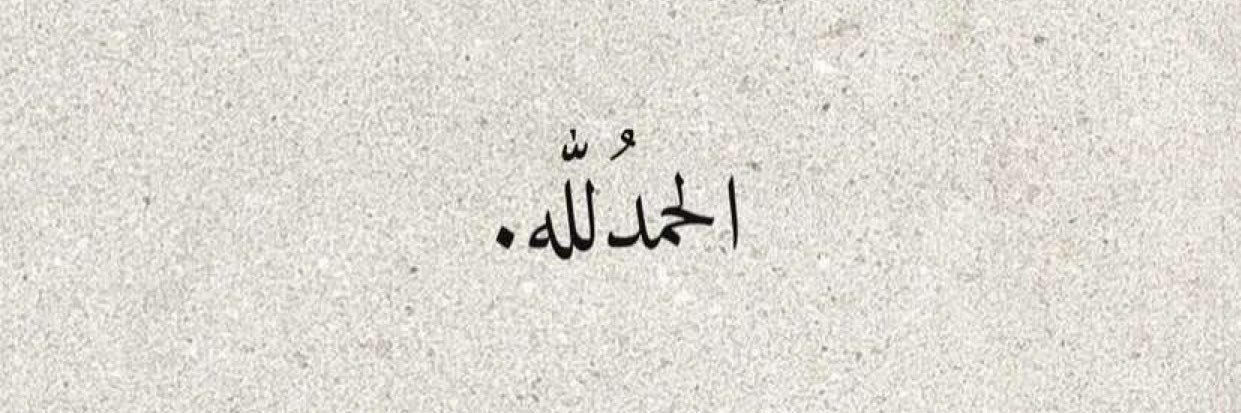 الحمدُ لله.